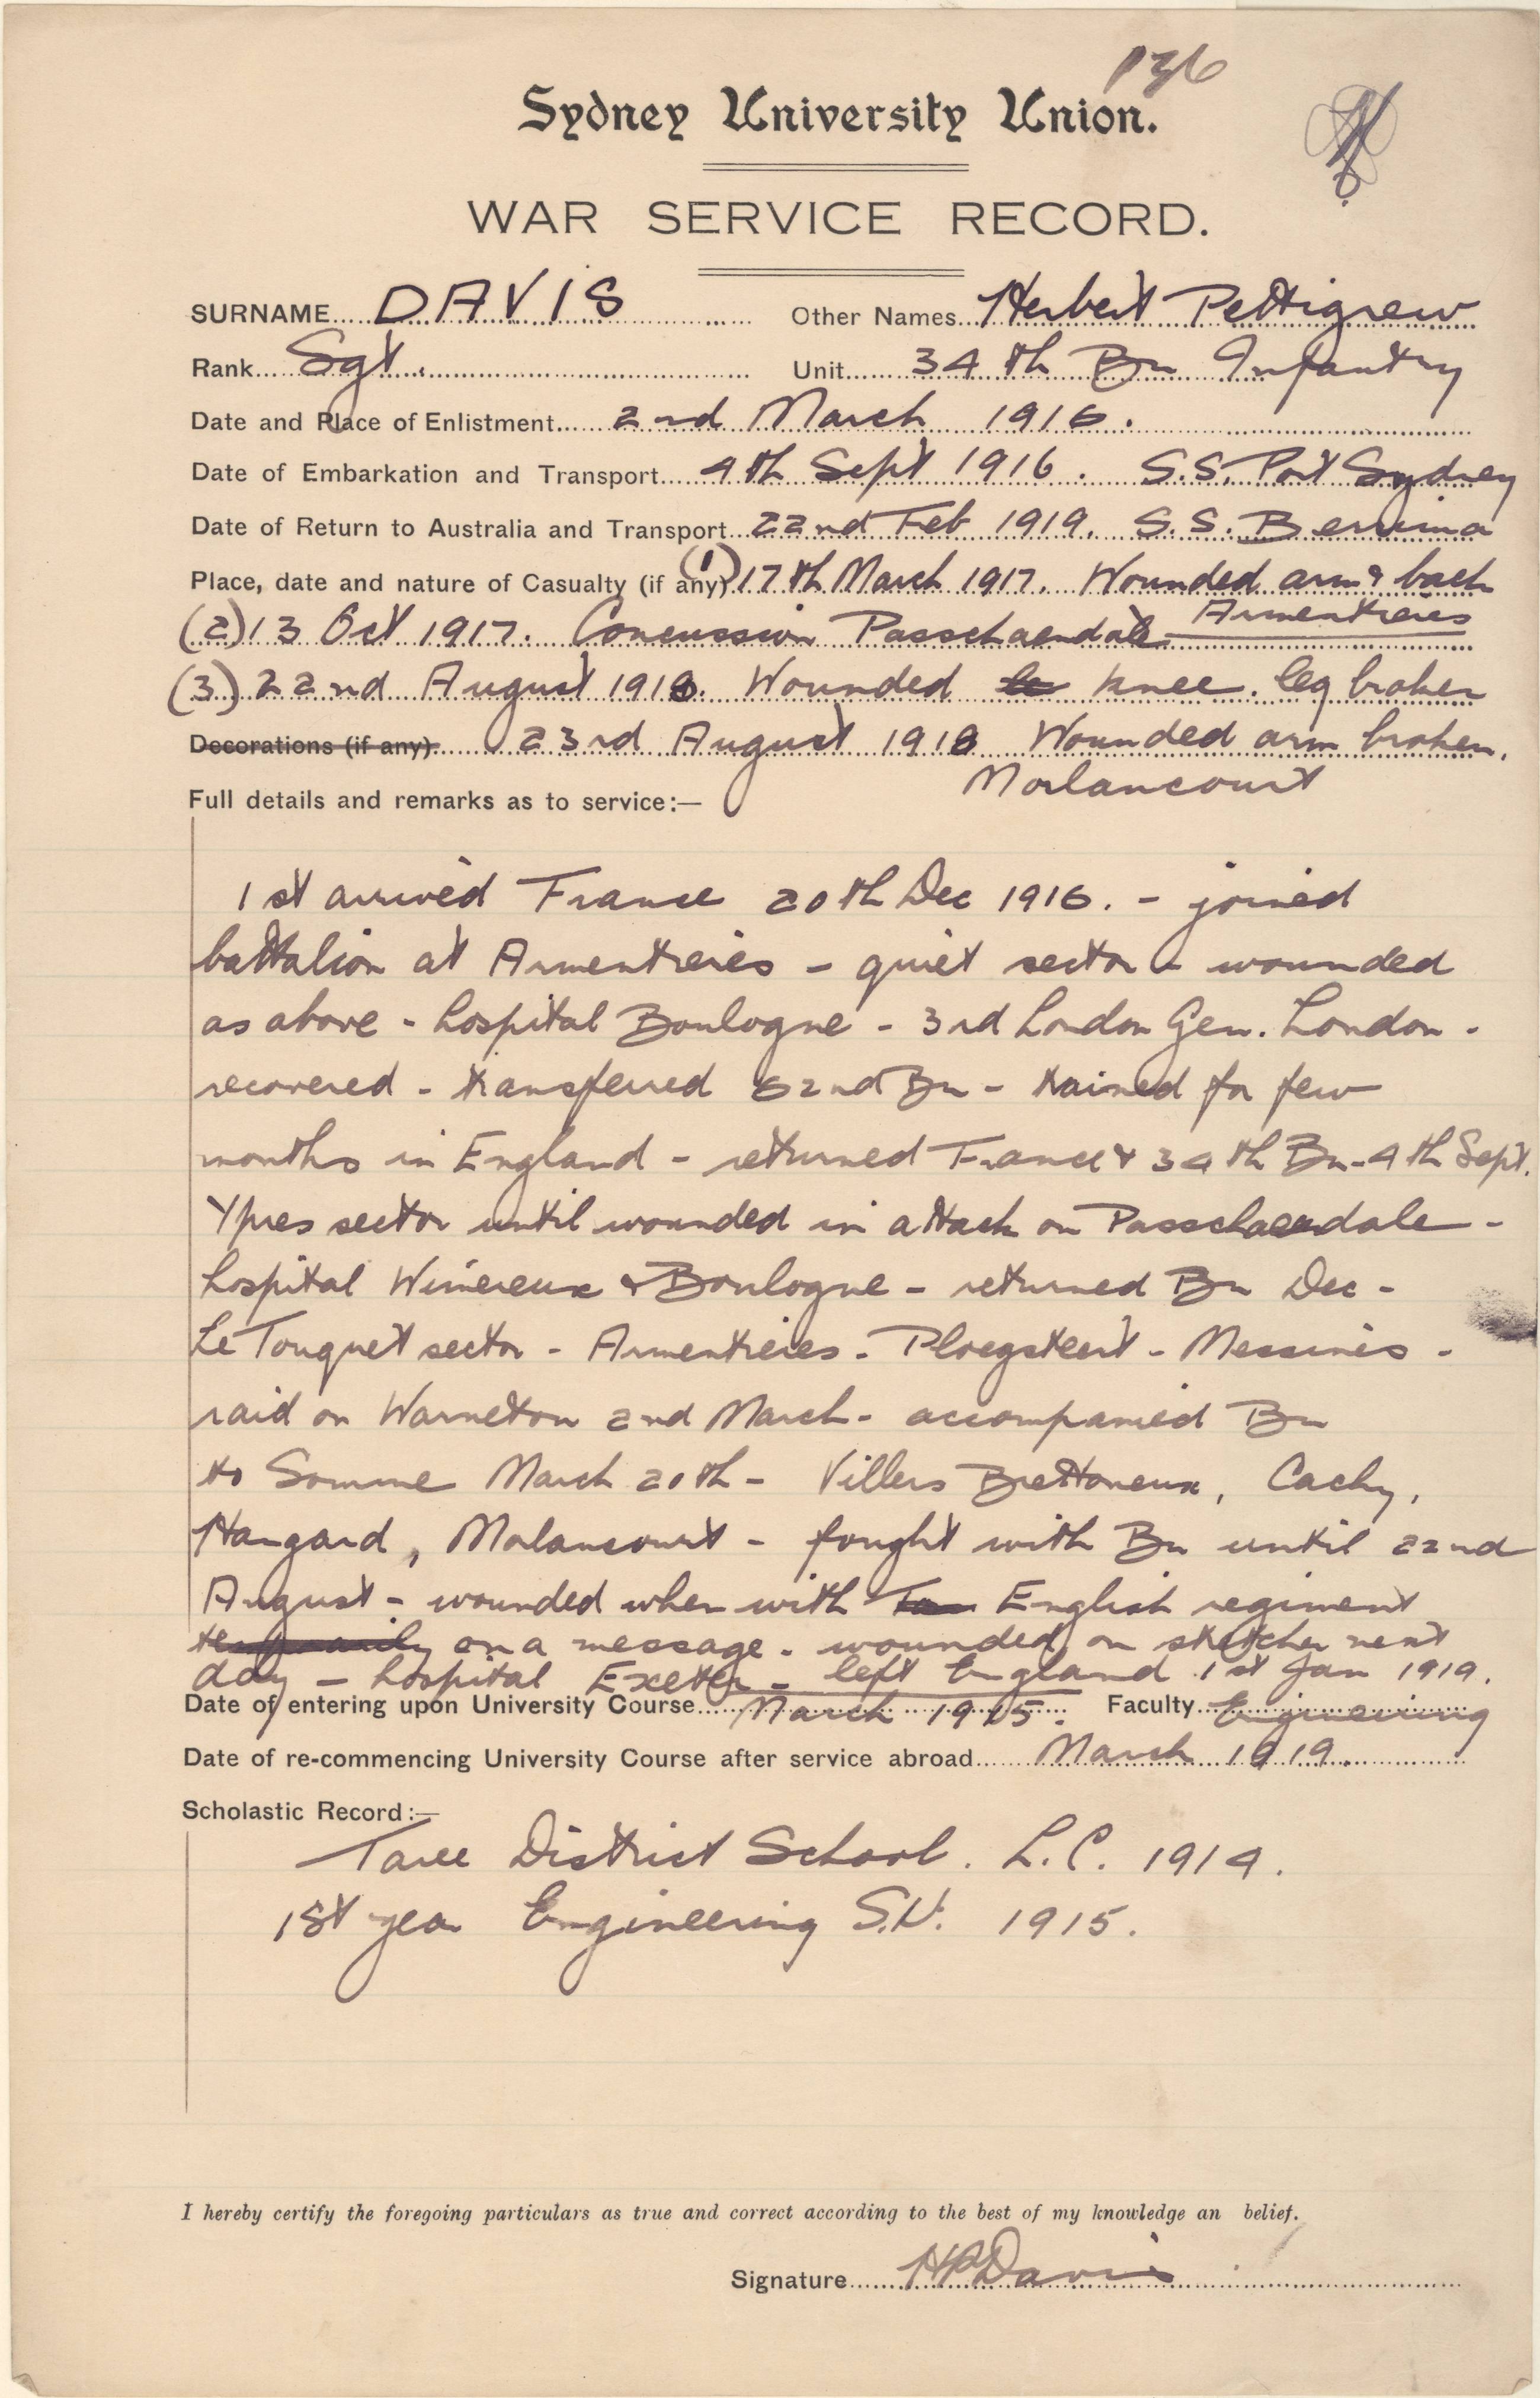 136
Sydney University Union.
WAR SERVICE RECORD.
SURNAME DAVIS Other Names Herbert Pettigrew
Rank Sgt. Unit 34th Bn Infantry
Date and Place of Enlistment 2nd March 1916.
Date of Embarkation and Transport 4th Sept 1916. S.S. Port Sydney
Date of Return to Australia and Transport 22nd Feb 1919. S.S. Berrima
Place, date and nature of Casualty (if any) (1) 17th March 1917. Wounded arm & back
Armentieres
(2) 13 Oct 1917. Concussion Passchaendale
(3) 22nd August 1918. Wounded le knee. leg broken
Decorations (if any) 23rd August 1918 Wounded arm broken.
Morlancourt
Full details and remarks as to service:—
1st arrived France 20th Dec 1916. - joined
battalion at Armentieres - quiet sector - wounded
as above - hospital Boulogne - 3rd London Gen. London -
recovered - transferred 62nd Bn - trained for few
months in England - returned France & 34th Bn - 4th Sept.
Ypres sector until wounded in attack on Passchaendale -
hospital Wimereux & Boulogne - returned Bn Dec -
Le Touquet sector - Armentieres - Ploegsteert - Messines -
raid on Warneton 2nd March - accompanied Bn
to Somme March 20th - Villers Brettoneux, Cachy,
Hangard, Molancourt - fought with Bn until 22nd
August - wounded when with English regiment
on a message - wounded on stretcher next
day - hospital Exeter - left England 1st Jan 1919.
Date of entering upon University Course March 1915. Faculty Engineering
Date of re-commencing University Course after service abroad March 1919.
Scholastic Record:—
Taree District School. L.C. 1914.
1st year Engineering S.U. 1915.
I hereby certify the foregoing particulars as true and correct according to the best of my knowledge an belief.
Signature HPDavis